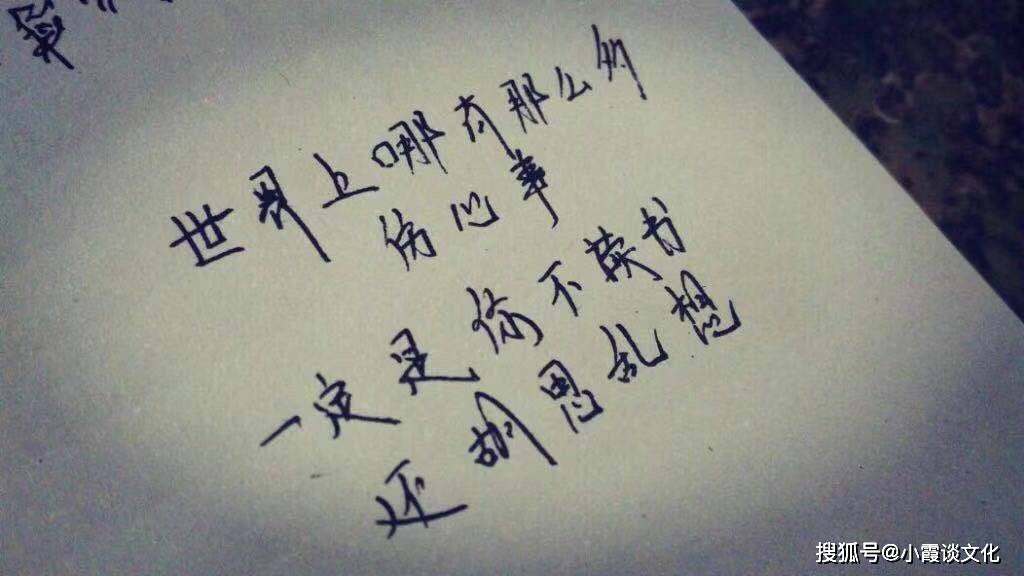 世界上哪有那么多
伤心事
一定是你不读书
还胡思乱想
搜狐号@小霞谈文化